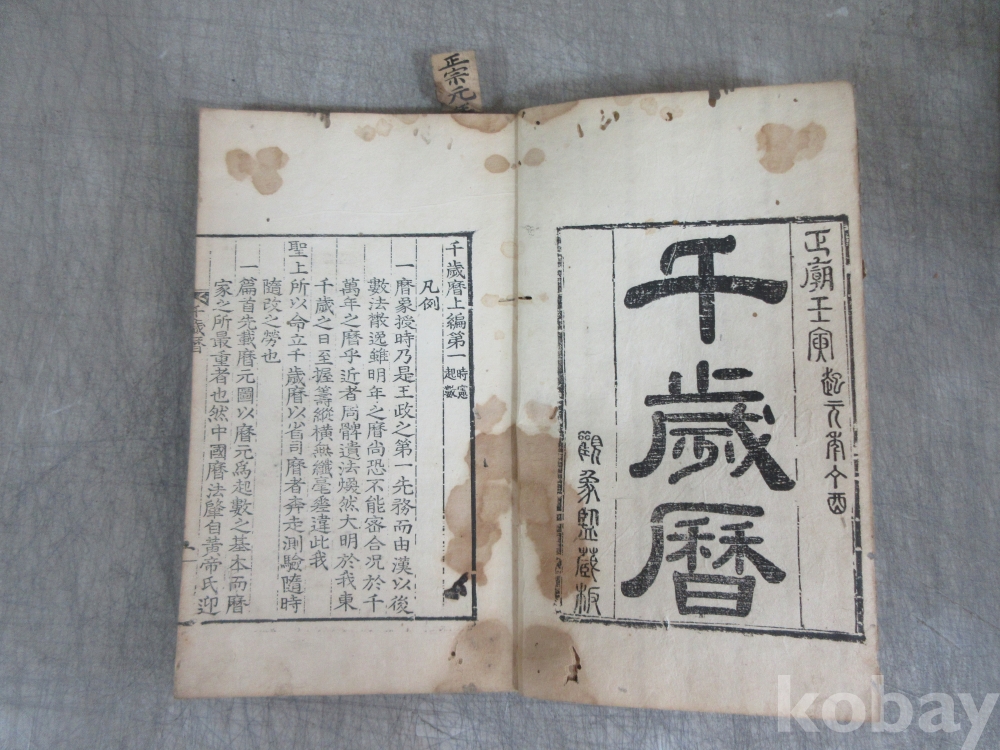 正宗元
正廟壬寅起元年丁酉
千歲曆
觀象監藏板
千歲曆上編第一 時憲起數
凡例
一曆象授時乃是王政之第一先務而由漢以後
數法散逸雖明年之曆尚恐不能審合况於千
萬年之曆乎近者周髀遺法煥然大明於我東
千歲之日至握籌縱橫無纖毫差違此我
聖上所以命立千歲曆以省司曆者奔走測驗隨時
隨改之勞也
一篇首先載曆元圖以曆元爲起數之基本而曆
家之所最重者也然中國曆法肇自黃帝氏迎
千歲曆
kobay